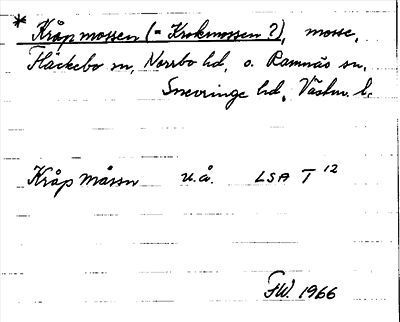 * Kråpmossen (= Krokmossen?), mosse,
Fläckebo sn, Norrbo hd, o. Ramnäs sn,
Snevringe hd, Västm. l.
Kråpmåssn u.å. LSA T 12
FW. 1966